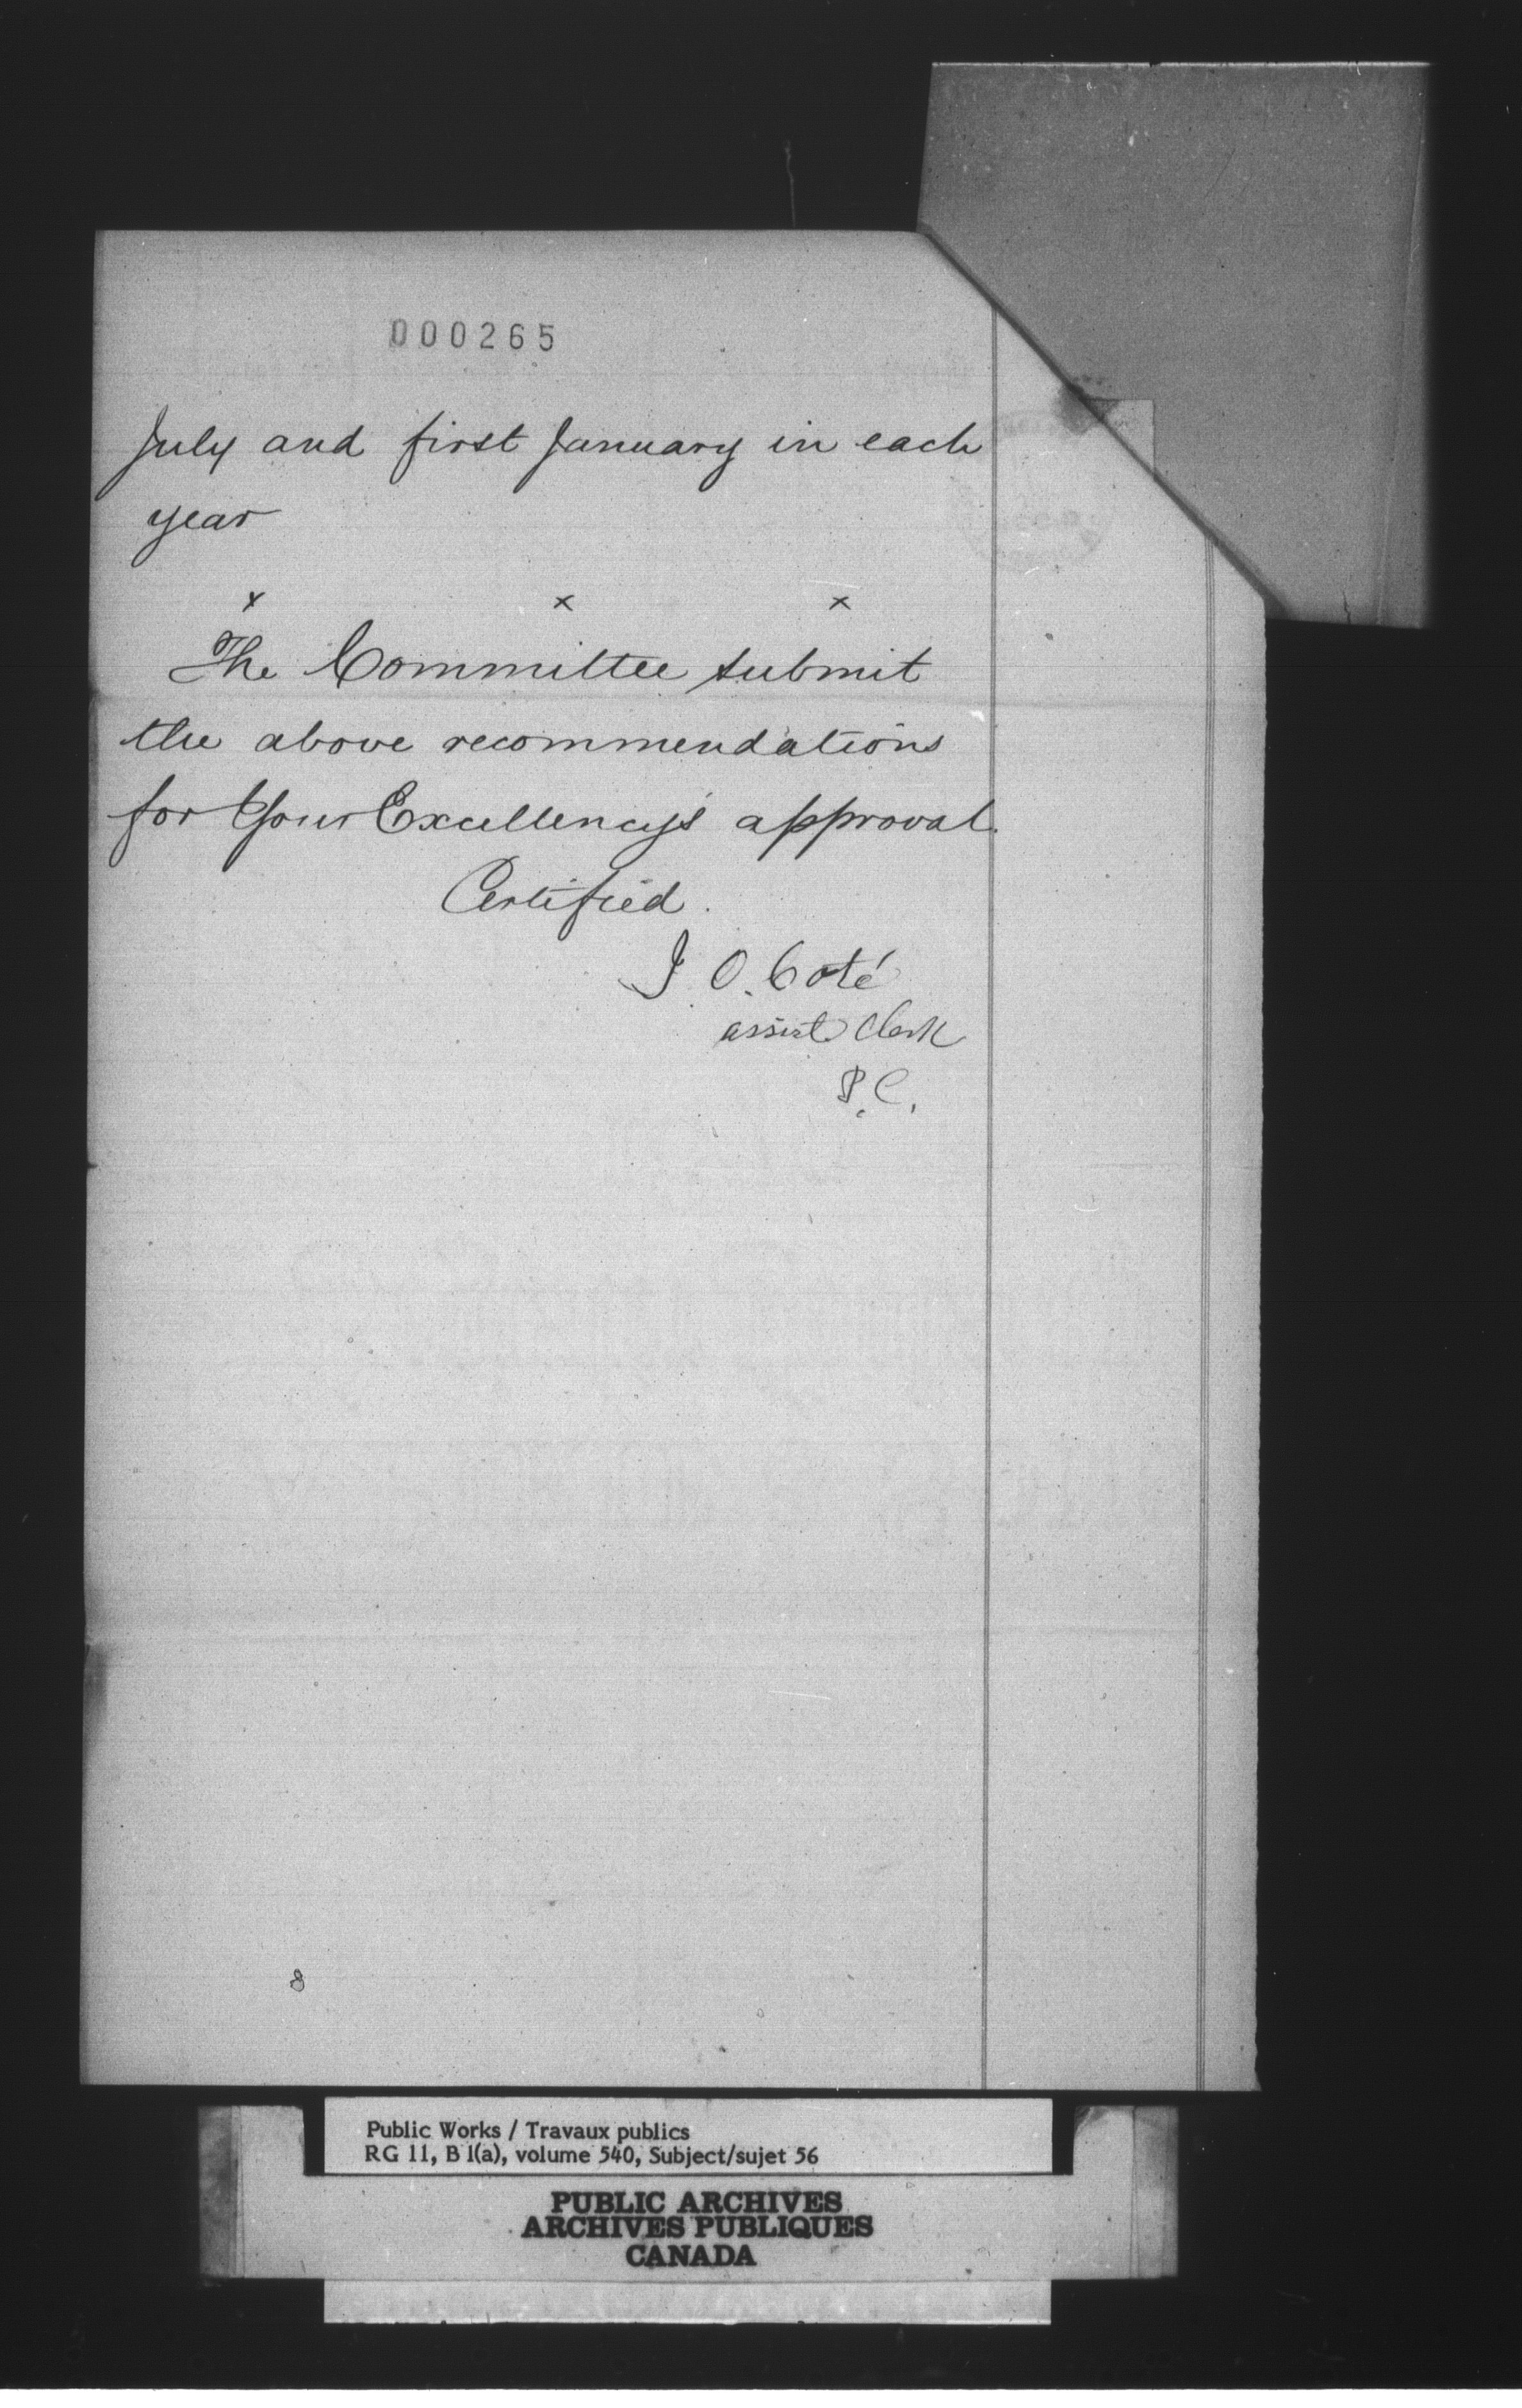 000265
July and first January in each
year
x x x
The Committee submit
the above recommendations
for Your Excellency's approval.
Certified.
J. O. Coté
assist. Clerk
P.C.
8
Public Works / Travaux publics
RG 11, B 1(a), volume 540, Subject/sujet 56
PUBLIC ARCHIVES
ARCHIVES PUBLIQUES
CANADA